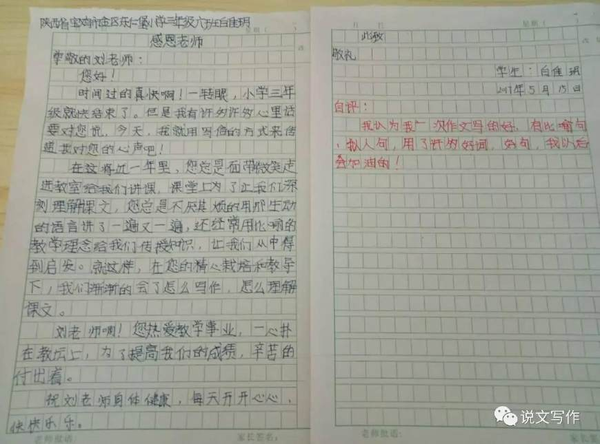 感恩老师
尊敬的刘老师：
您好！
时间过的真快啊！一转眼，小学三年
级就快结束了。但是我有许许多多心里话
要对您说，今天，我就用写信的方式来传
递我对您的心声吧！
在这将近一年里，您总是面带微笑走
进教室给我们讲课，课堂上为了让我们深
刻理解课文，您总是不厌其烦的用那生动
的语言讲了一遍又一遍，还经常用比喻的
教学理念给我们传授知识，让我们从中得
到启发。就这样，在您的精心栽培和教导
下，我们渐渐的会了怎么写作，怎么理解
课文。
刘老师啊！您热爱教学事业，一心扑
在教坛上，为了提高我们的成绩，辛苦的
付出着。
祝刘老师身体健康，每天开开心心，
快快乐乐。
老师批语：
家长签名：
此致
敬礼
学生：白佳玥
2017年5月15日
自评：
我认为我这次作文写的好，有比喻句
、拟人句，用了许多好词、好句，我以后
会加油的！
老师批语：
家长签名：
说文写作